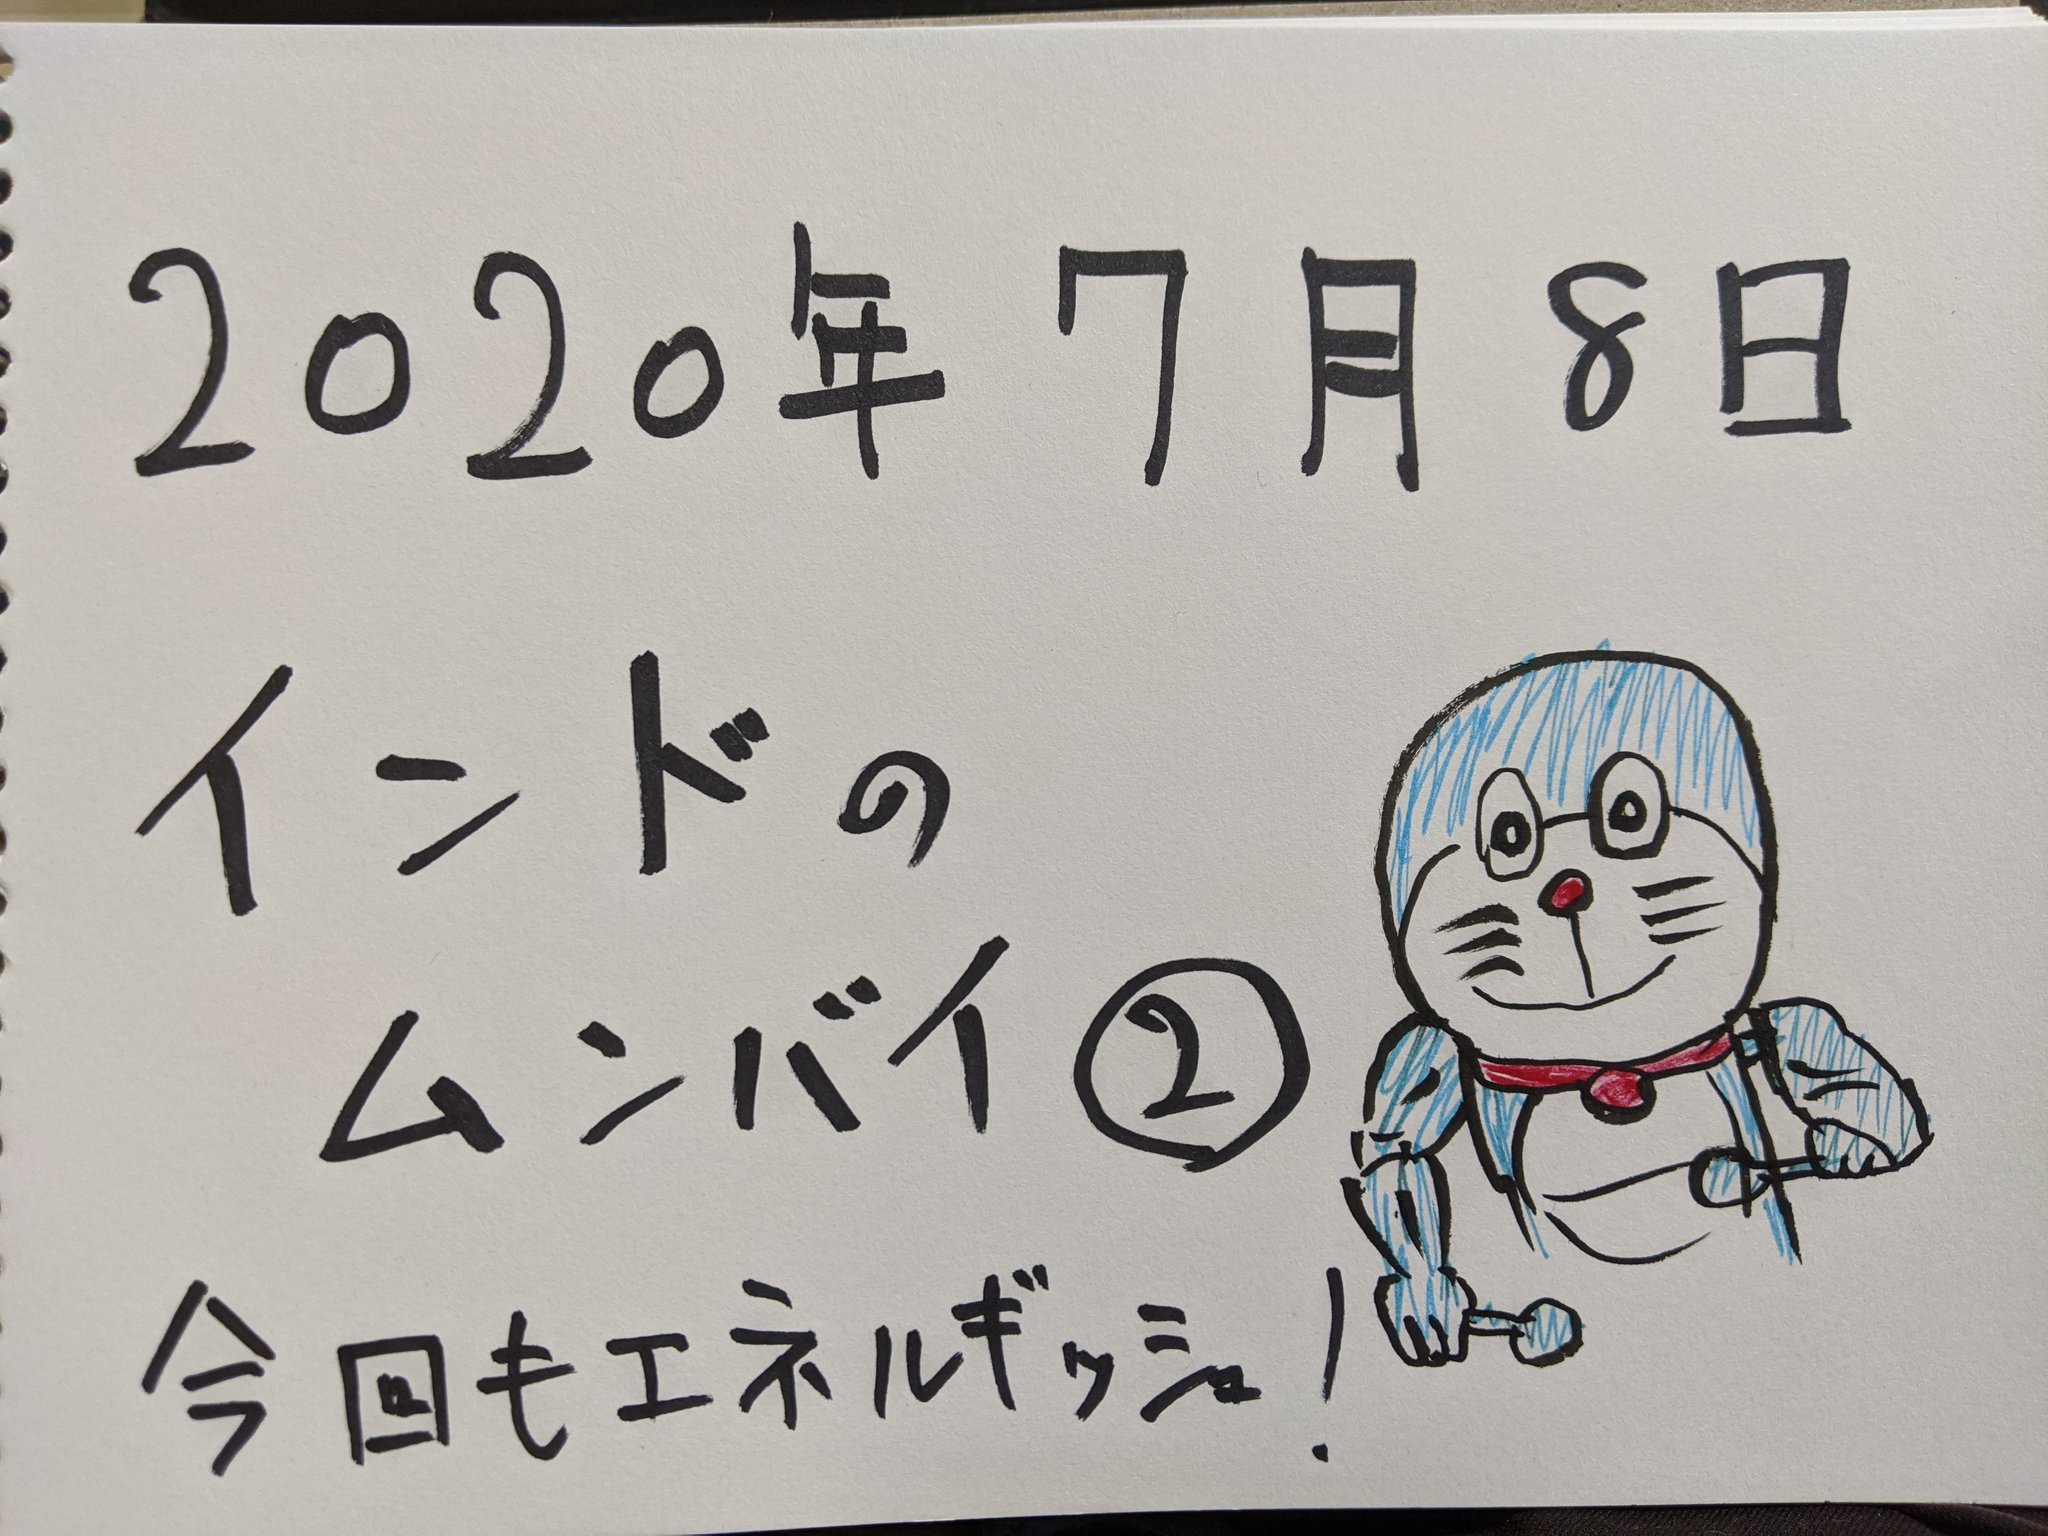 2020年7月8日
インドの
ムンバイ②
今回もエネルギッシュ!